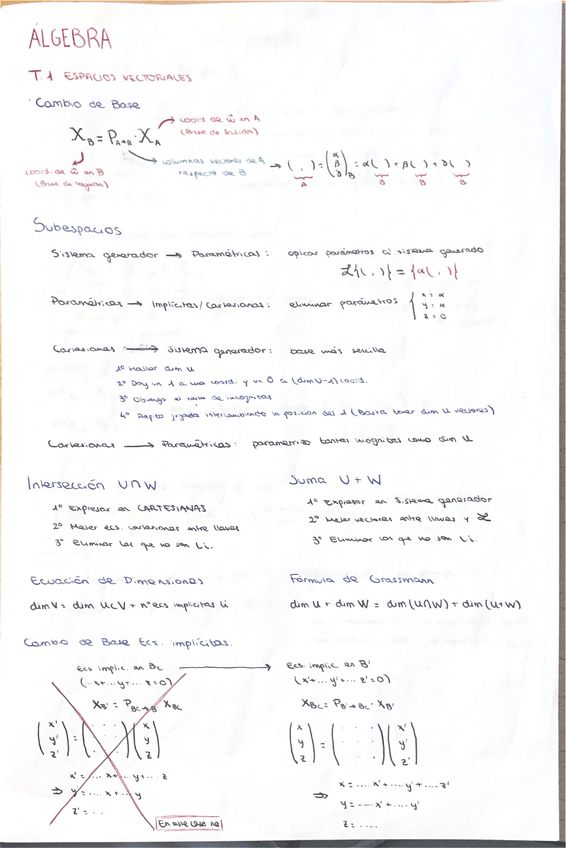 ÁLGEBRA
T.1 ESPACIOS VECTORIALES
· Cambio de Base
X_B = P_{A→B} · X_A
coord. de w⃗ en A
(Base de salida)
coord. de w⃗ en B
(Base de llegada)
columnas vectores de A
respecto de B → ( , )_A = (α β ∂)_B = α( )_B + β( )_B + ∂( )_B
Subespacios
Sistema generador → Paramétricas: aplicar parámetros al sistema generado
ℒ{( , )} = {α( , )}
Paramétricas → Implícitas/Cartesianas: eliminar parámetros { x = α
y = α
z = 0
Cartesianas → Sistema generador: base más sencilla
1º Hallar dim U
2º Doy un 1 a una coord. y un 0 a (dim U-1) coord.
3º Obtengo el resto de incognitas
4º Repito jugada intercambiando la posición del 1 (Hasta tener dim U vectores)
Cartesianas → Paramétricas: parametrizo tantas incognitas como dim U
Intersección U∩W
1º Expresar en CARTESIANAS
2º Meter ecs. cartesianas entre llaves
3º Eliminar las que no son l.i.
Suma U + W
1º Expresar en Sistema generador
2º Meter vectores entre llaves y ℒ
3º Eliminar los que no son l.i.
Ecuación de Dimensiones
dim V = dim U⊂V + nº ecs implícitas li
Fórmula de Grassmann
dim U + dim W = dim (U∩W) + dim (U+W)
Cambio de Base Ecs. implícitas.
Ecs implic. en Bc → Ecs. implic. en B'
(... x + ... y + ... z = 0)
X_B' = P_{Bc→B'} X_Bc
(x' y' z') = ( . . . ) (x y z)
x' = ... x + ... y + ... z
⇒ y' = ... x + ... y
z' = ...
En este caso no
(x' + ... y' + ... z' = 0)
X_Bc = P_{B'→Bc} · X_B'
(x y z) = ( . . . ) (x' y' z')
x = .... x' + .... y' + .... z'
⇒ y = .... x' + ... y'
z = ....